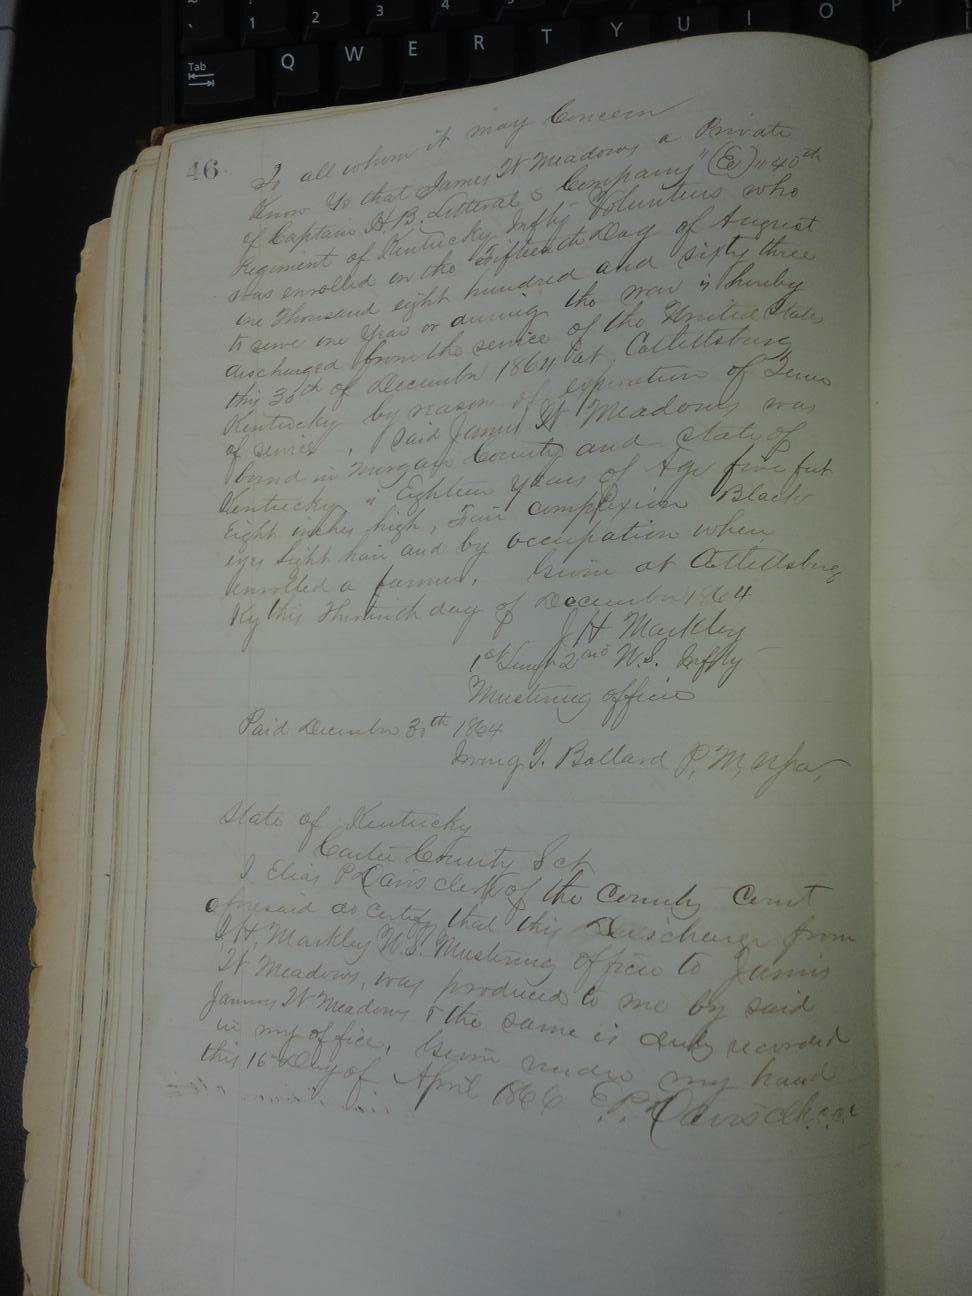 ~ 1 2 3 4 5
` Q W E R T Y U I O P
Tab
46
To all whom it may Concern
Know Ye that James W Meadows a Private
of Captain H.B. Litteral s Company "(E)" 40th
Regiment of Kentucky Infty Volunteers who
was enrolled on the Fifteenth Day of August
one Thousand eight hundred and sixty three
to serve one Year or during the war is hereby
discharged from the service of the United States
this 30th of December 1864 at Catlettsburg
Kentucky by reason of expiration of Term
of service, Said James W Meadows was
born in Morgan County and State of
Kentucky " Eighteen Years of Age five feet
Eight inches high, Fair complexion Black
eyes Light hair and by occupation when
enrolled a farmer. Given at Catlettsburg
Ky this Thirtieth day of December 1864
J H Markley
1st Lieut 2nd U.S. Infty
Mustering officer
Paid December 30th 1864
Irving Ballard P.M.
State of Kentucky
Carter County Sct
I Elias P Davis clerk of the County Court
aforesaid do certify that this Discharge from
J.H. Markley U.S. Mustering officer to James
W Meadows, was produced to me by said
James W Meadows & the same is duly recorded
in my office, Given under my hand
this 16 Day of April 1866 E.P. Davis clk